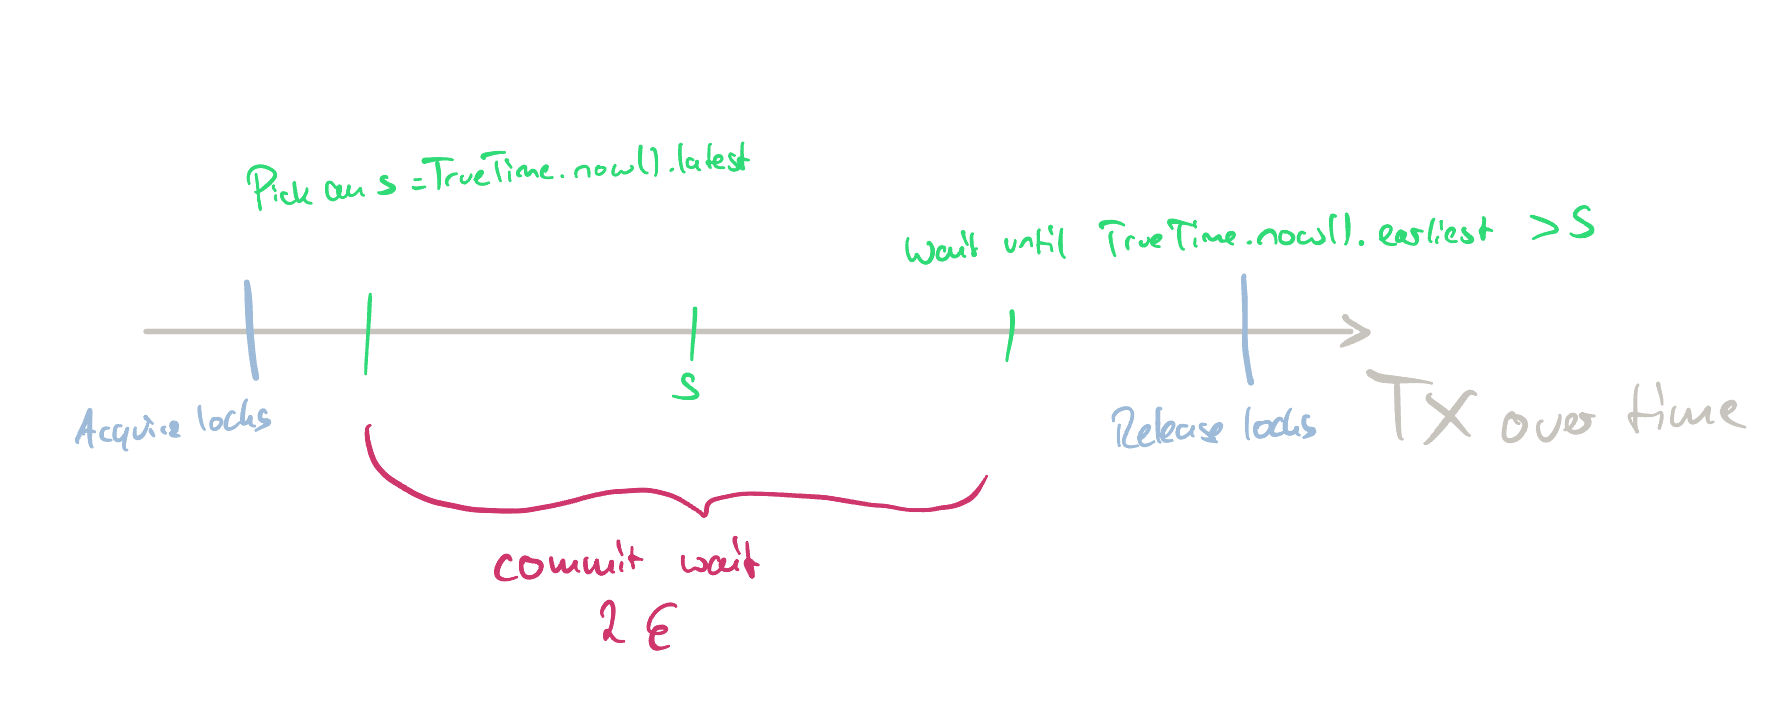 Pick an s = TrueTime.now().latest
Wait until TrueTime.now().earliest > S
S
Acquire locks
Release locks
TX over time
commit wait
2 ϵ